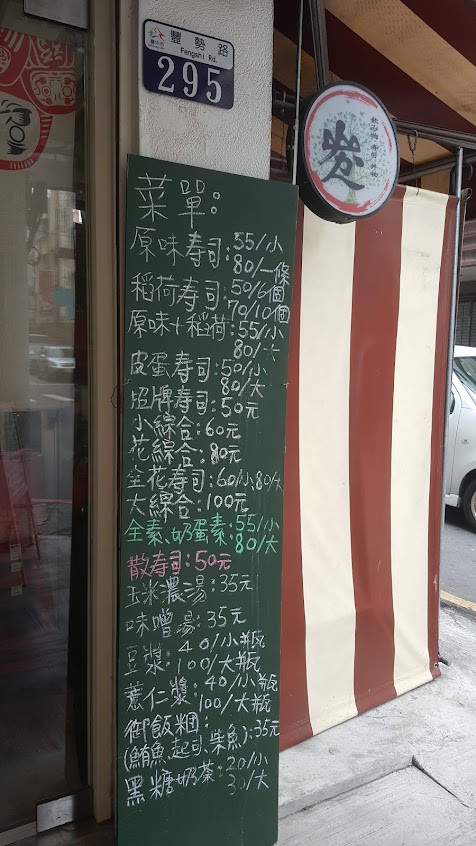 豐勢路
Fengshi Rd.
295
菜單:
原味寿司:55/小
80/一條
稻荷寿司:50/6個
70/10個
原味+稻荷:55/小
80/大
皮蛋寿司:50/小
80/大
招牌寿司:50元
小綜合:60元
花綜合:80元
全花寿司:60/小80/大
大綜合:100元
全素、奶蛋素:55/小
80/大
散寿司:50元
玉米濃湯:35元
味噌湯:35元
豆漿:40/小瓶
100/大瓶
薏仁漿:40/小瓶
100/大瓶
御飯糰:
(鮪魚,起司,柴魚):35元
黑糖奶茶:20/小
30/大